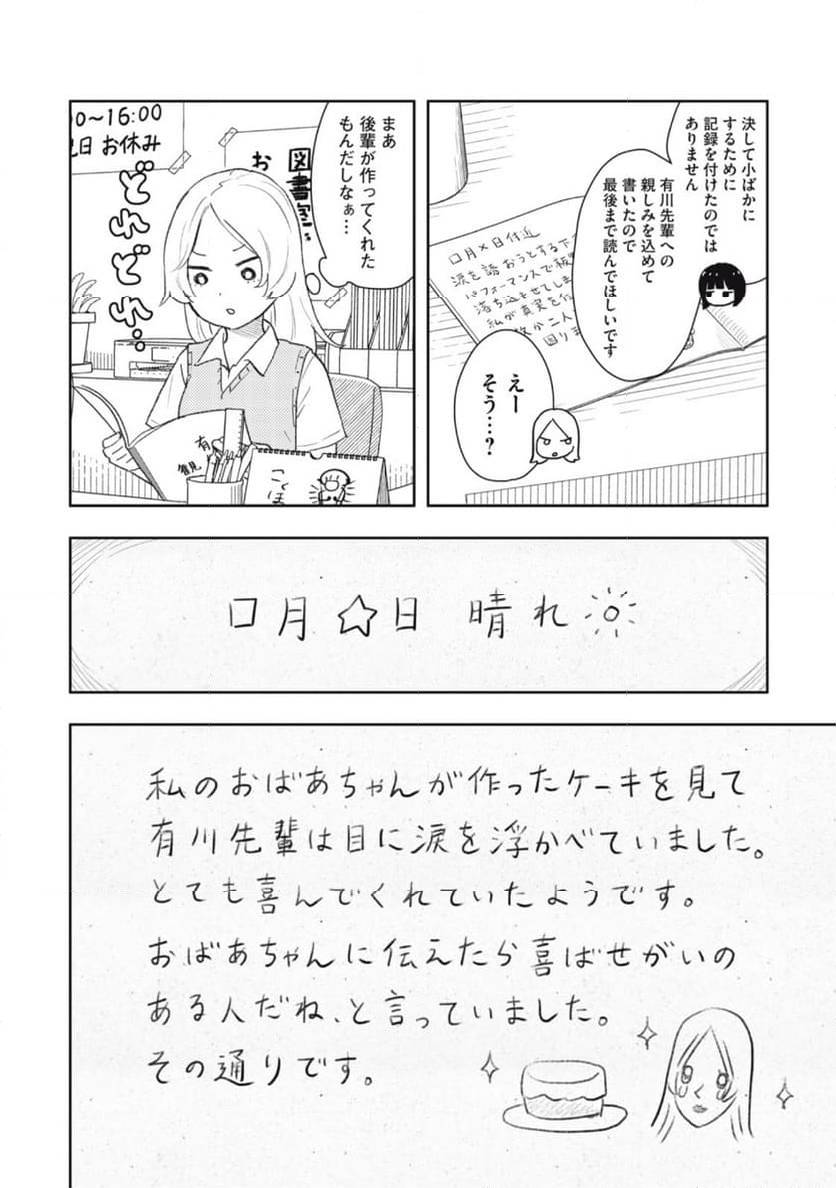 決して小ばかに
するために
記録を付けたのでは
ありません
有川先輩への
親しみを込めて
書いたので
最後まで読んでほしいです
口月×日付近
涙を誘おうとする下
パフォーマンスで
落ち込ませてしま
私が真実を
困りま
えー
そう…?
まあ
後輩が作ってくれた
もんだしなぁ…
0〜16:00
日 お休み
図書室
お
どれどれ…
有
観見
こくほ
口月☆日 晴れ
私のおばあちゃんが作ったケーキを見て
有川先輩は目に涙を浮かべていました。
とても喜んでくれていたようです。
おばあちゃんに伝えたら喜ばせがいの
ある人だね、と言っていました。
その通りです。